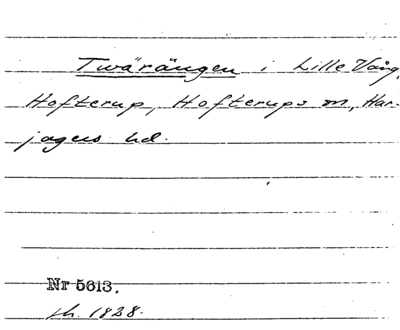 Twärängen i Lille Vång,
Hofterup, Hofterups m, Har-
jagers hd.
Nr 5613.
sk. 1828.